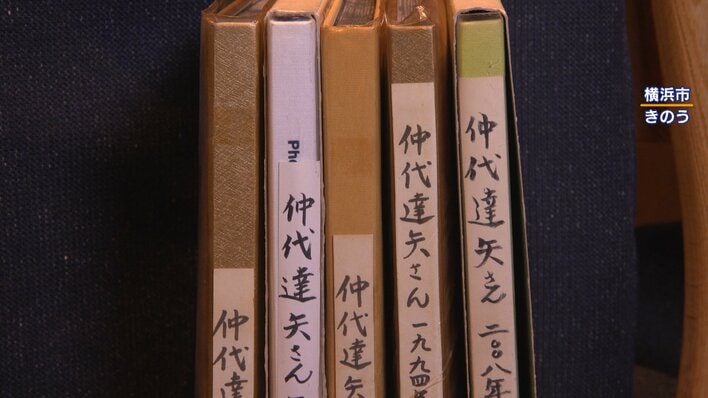 仲代達
Pho
仲代達矢さん
仲代達矢
仲代達矢さん 一九九四年
仲代達矢さん 二〇〇八年
横浜市
きのう